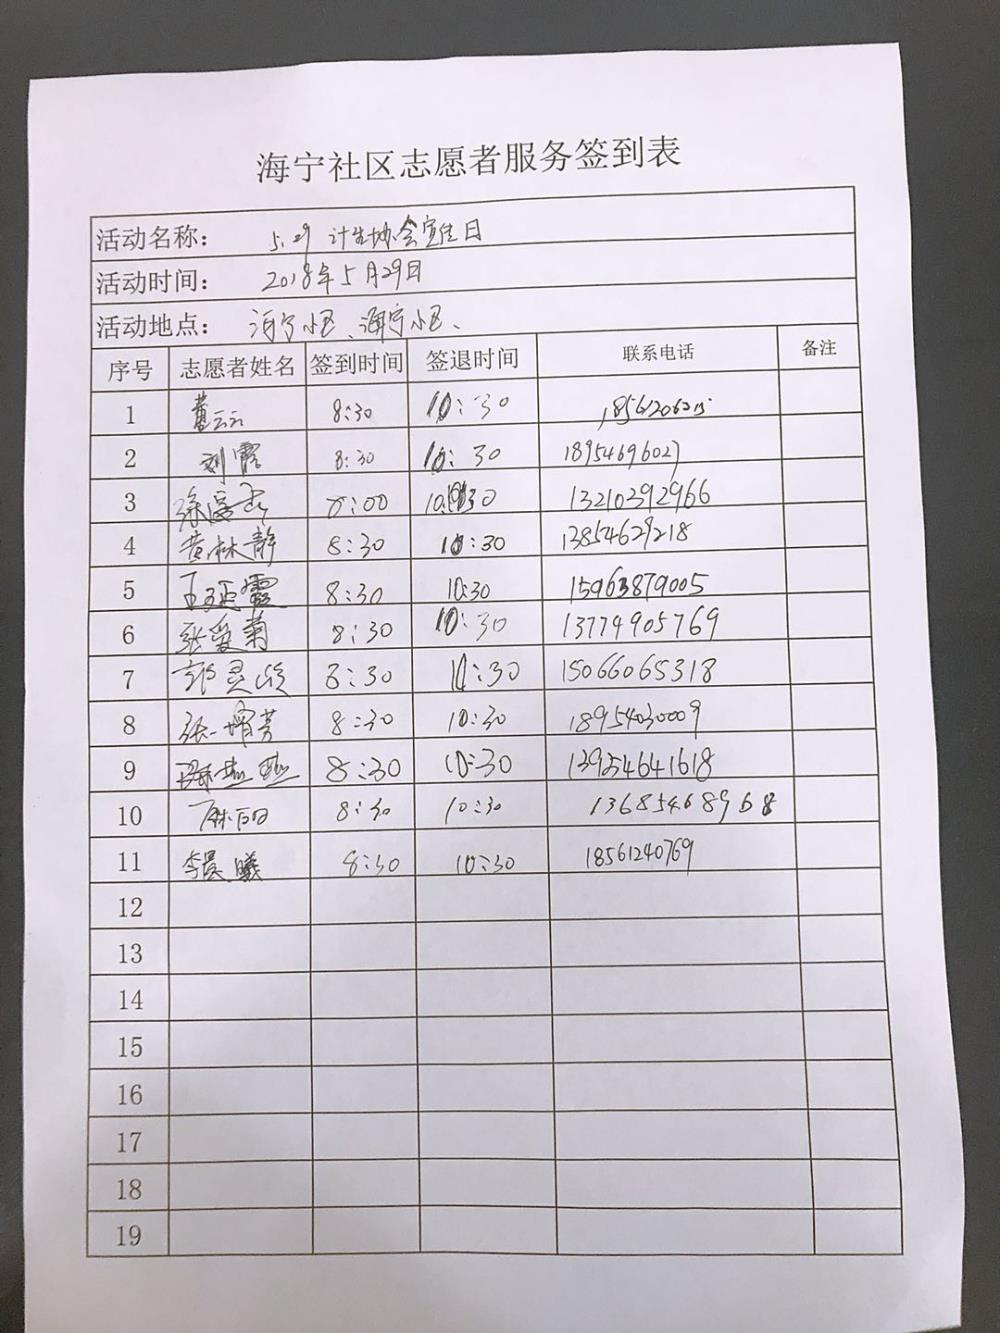 海宁社区志愿者服务签到表
活动名称： 5.29 计生协会宣传日
活动时间： 2018年5月29日
活动地点： 河宁小区、海宁小区、
序号 志愿者姓名 签到时间 签退时间 联系电话 备注
1 董云云 8:30 10:30
2 刘霞 8:30 10:30 18954696027
3 10:30 13210392966
4 黄林静 8:30 10:30 13854629218
5 8:30 10:30 15963879005
6 张爱菊 8:30 10:30 13774905769
7 郭灵 8:30 10:30 15066065318
8 8:30 10:30 18954030009
9 8:30 10:30 13954641618
10 8:30 10:30 13685468968
11 李晨曦 8:30 10:30 18561240769
12
13
14
15
16
17
18
19